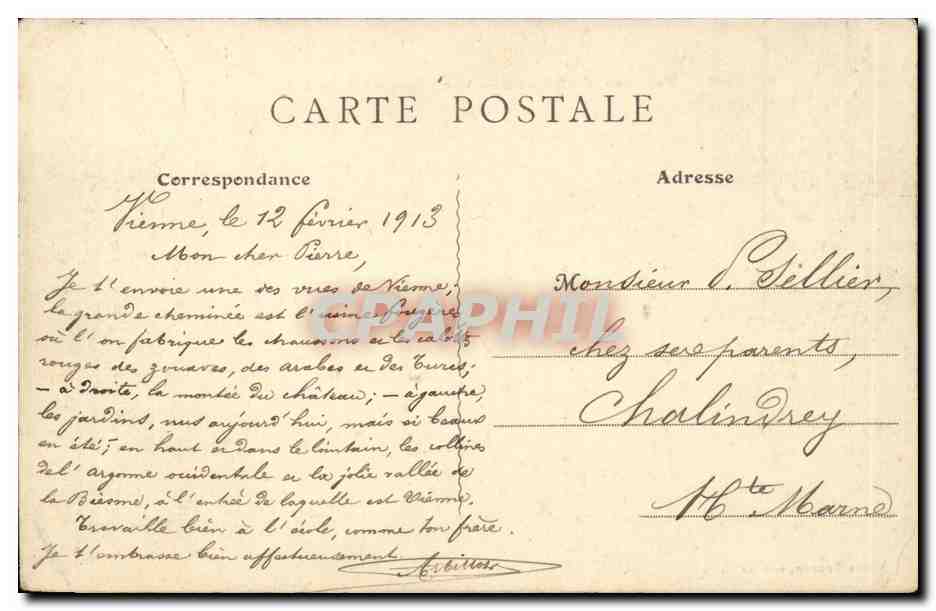 CARTE POSTALE
Correspondance
Vienne, le 12 février 1913
Mon cher Pierre,
Je t'envoie une des vues de Vienne;
la grande cheminée est l'usine
où l'on fabrique les chaussons et les calottes
rouges des zouaves, des arabes et des Turcs;
— à droite, la montée du château; — à gauche,
les jardins, nus aujourd'hui, mais si beaux
en été; en haut et dans le lointain, les collines
de l'Argonne occidentale et la jolie vallée de
la Biesme, à l'entrée de laquelle est Vienne.
Travaille bien à l'école, comme ton frère.
Je t'embrasse bien affectueusement.
Adresse
Monsieur P. Sellier,
chez ses parents,
Chalindrey
Hte Marne
CPAPHIL